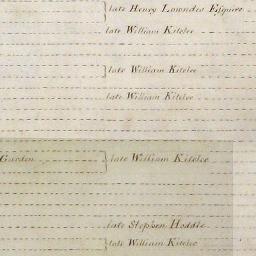 late Henry Lowndes Esquire
late William Kitelee
late William Kitelee
late William Kitelee
Garden late William Kitelee
late Stephen Hoddle
late William Kitelee